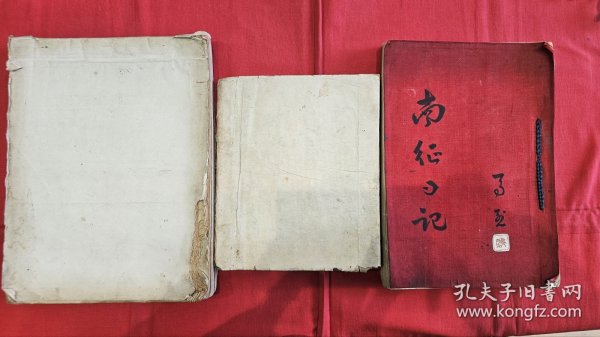 南征日记
孔夫子旧书网
www.kongfz.com